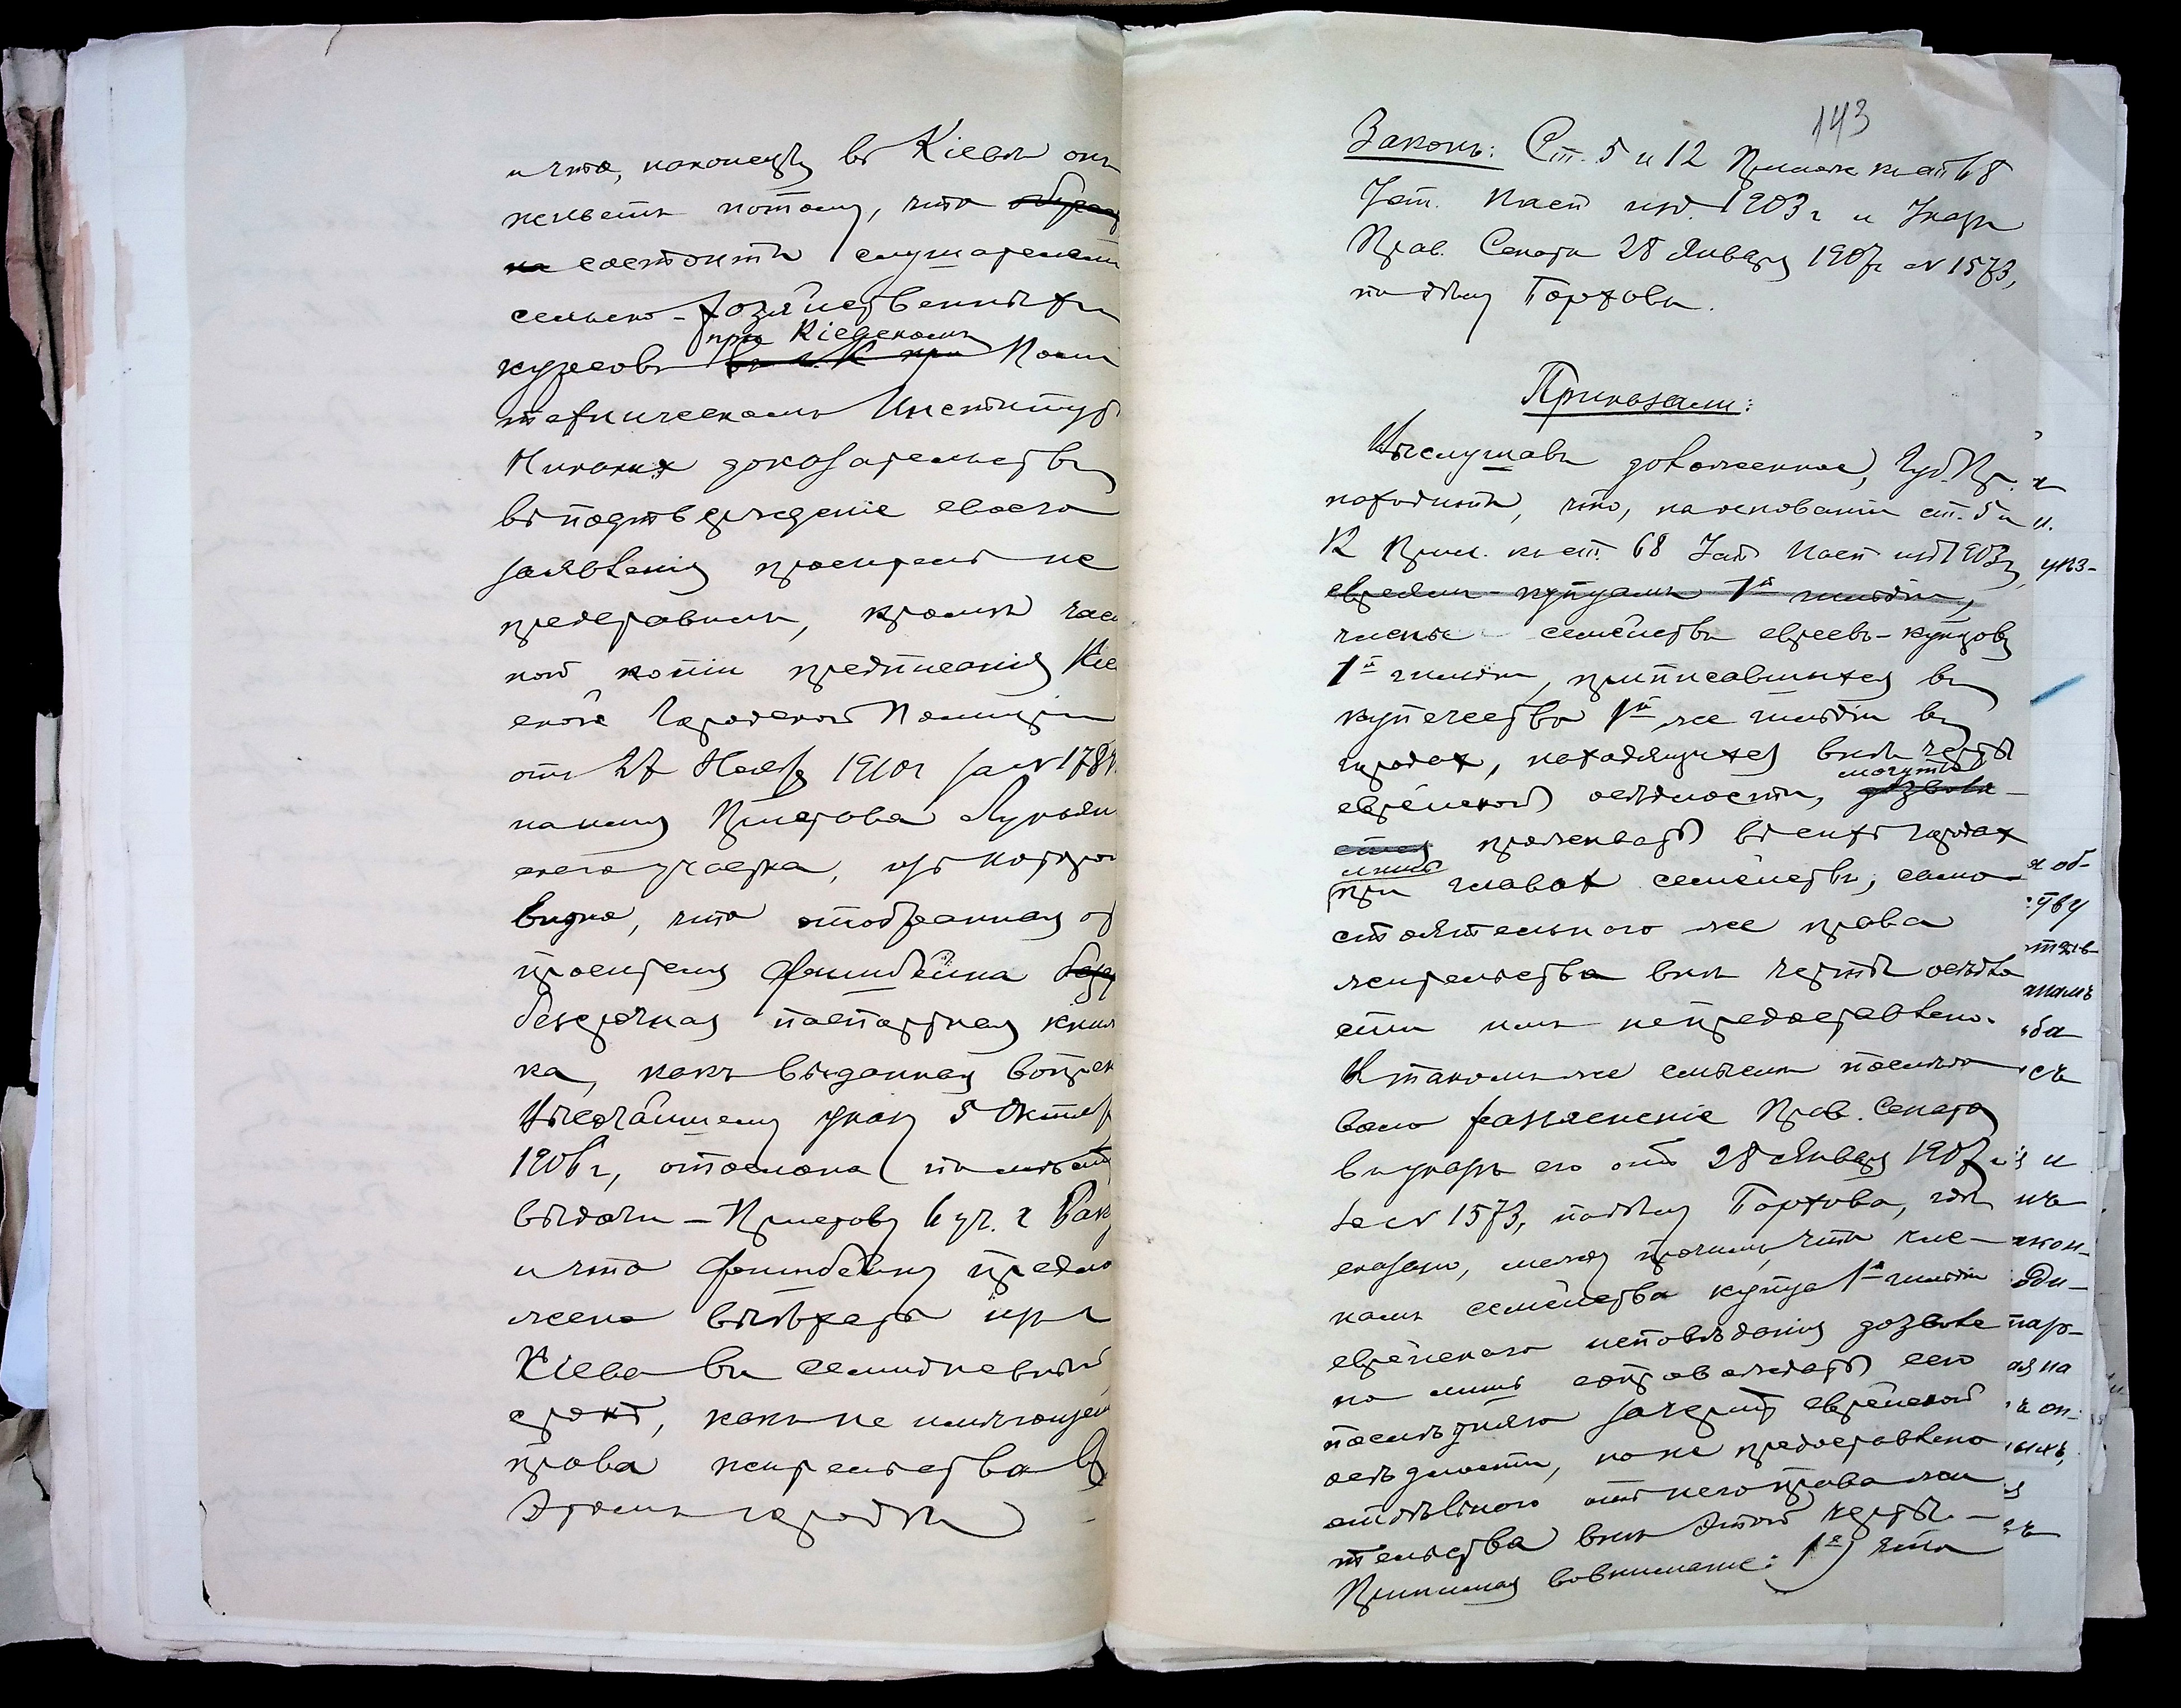 и что, наконецъ, въ Кіевѣ онъ
живетъ потому, что
состоитъ слушателемъ
сельско-хозяйственныхъ
при Кіевскомъ
курсовъ въ г. К при Поли
техническомъ Институт
Никакихъ доказательствъ
въ подтвержденіе своего
заявленія проситель не
представилъ, кромѣ час
ной копіи предписанія Кіе
ской Городской Полиціи
отъ 27 Нояб 1910 г за №
на имя Пристава Лукьян
скаго участка, изъ котор
видно, что отобранная от
просителя Файнбейна
безсрочная паспортная книж
ка, какъ выданная вопрек
Высочайшему указу 5 Октяб
1906 г, отослана по мѣсту
выдачи – Приставу 6 уч. г Баку
и что Файнбейну предло
жено выѣхать изъ г
Кіева въ семидневный
срокъ, какъ не имѣющем
права жительства въ
этомъ городѣ
143
Законъ: Ст. 5 и 12 Прилож къ ст 68
Уст. Пасп изд. 1903 г и Указъ
Прав. Сената 28 Января 1907 г № 1573,
по дѣлу Горхова.
Приказали:
Выслушавъ доложенное, Губ. Пр.
находитъ, что, на основаніи ст. 5 и
12 Прил. къ ст. 68 Уст Пасп изд 1903 г,
евреямъ-купцамъ 1й гильдіи,
члены семействъ евреевъ-купцовъ
1й гильдіи, приписавшихся въ
купечество 1й же гильдіи въ
городах, находящихся внѣ черты
могутъ
еврейской осѣдлости, дозволя-
ется проживать въ сихъ городах
лишь
при главах семействъ, само-
стоятельнаго же права
жительства внѣ черты осѣдло
сти имъ не предоставлено.
Въ такомъ же смыслѣ послѣдо
вало разъясненіе Прав. Сената
въ указѣ его отъ 28 Января 1907 г
за № 1573, по дѣлу Горхова, гдѣ
сказано, между прочимъ, что чле-
намъ семейства купца 1й гильдіи
еврейскаго исповѣданія дозволе
но лишь сопровождать его
послѣдняго за черту еврейской
осѣдлости, но не предоставлено
отдѣльнаго отъ него права жи
тельства внѣ этой черты. –
Принимая во вниманіе: 1е) что